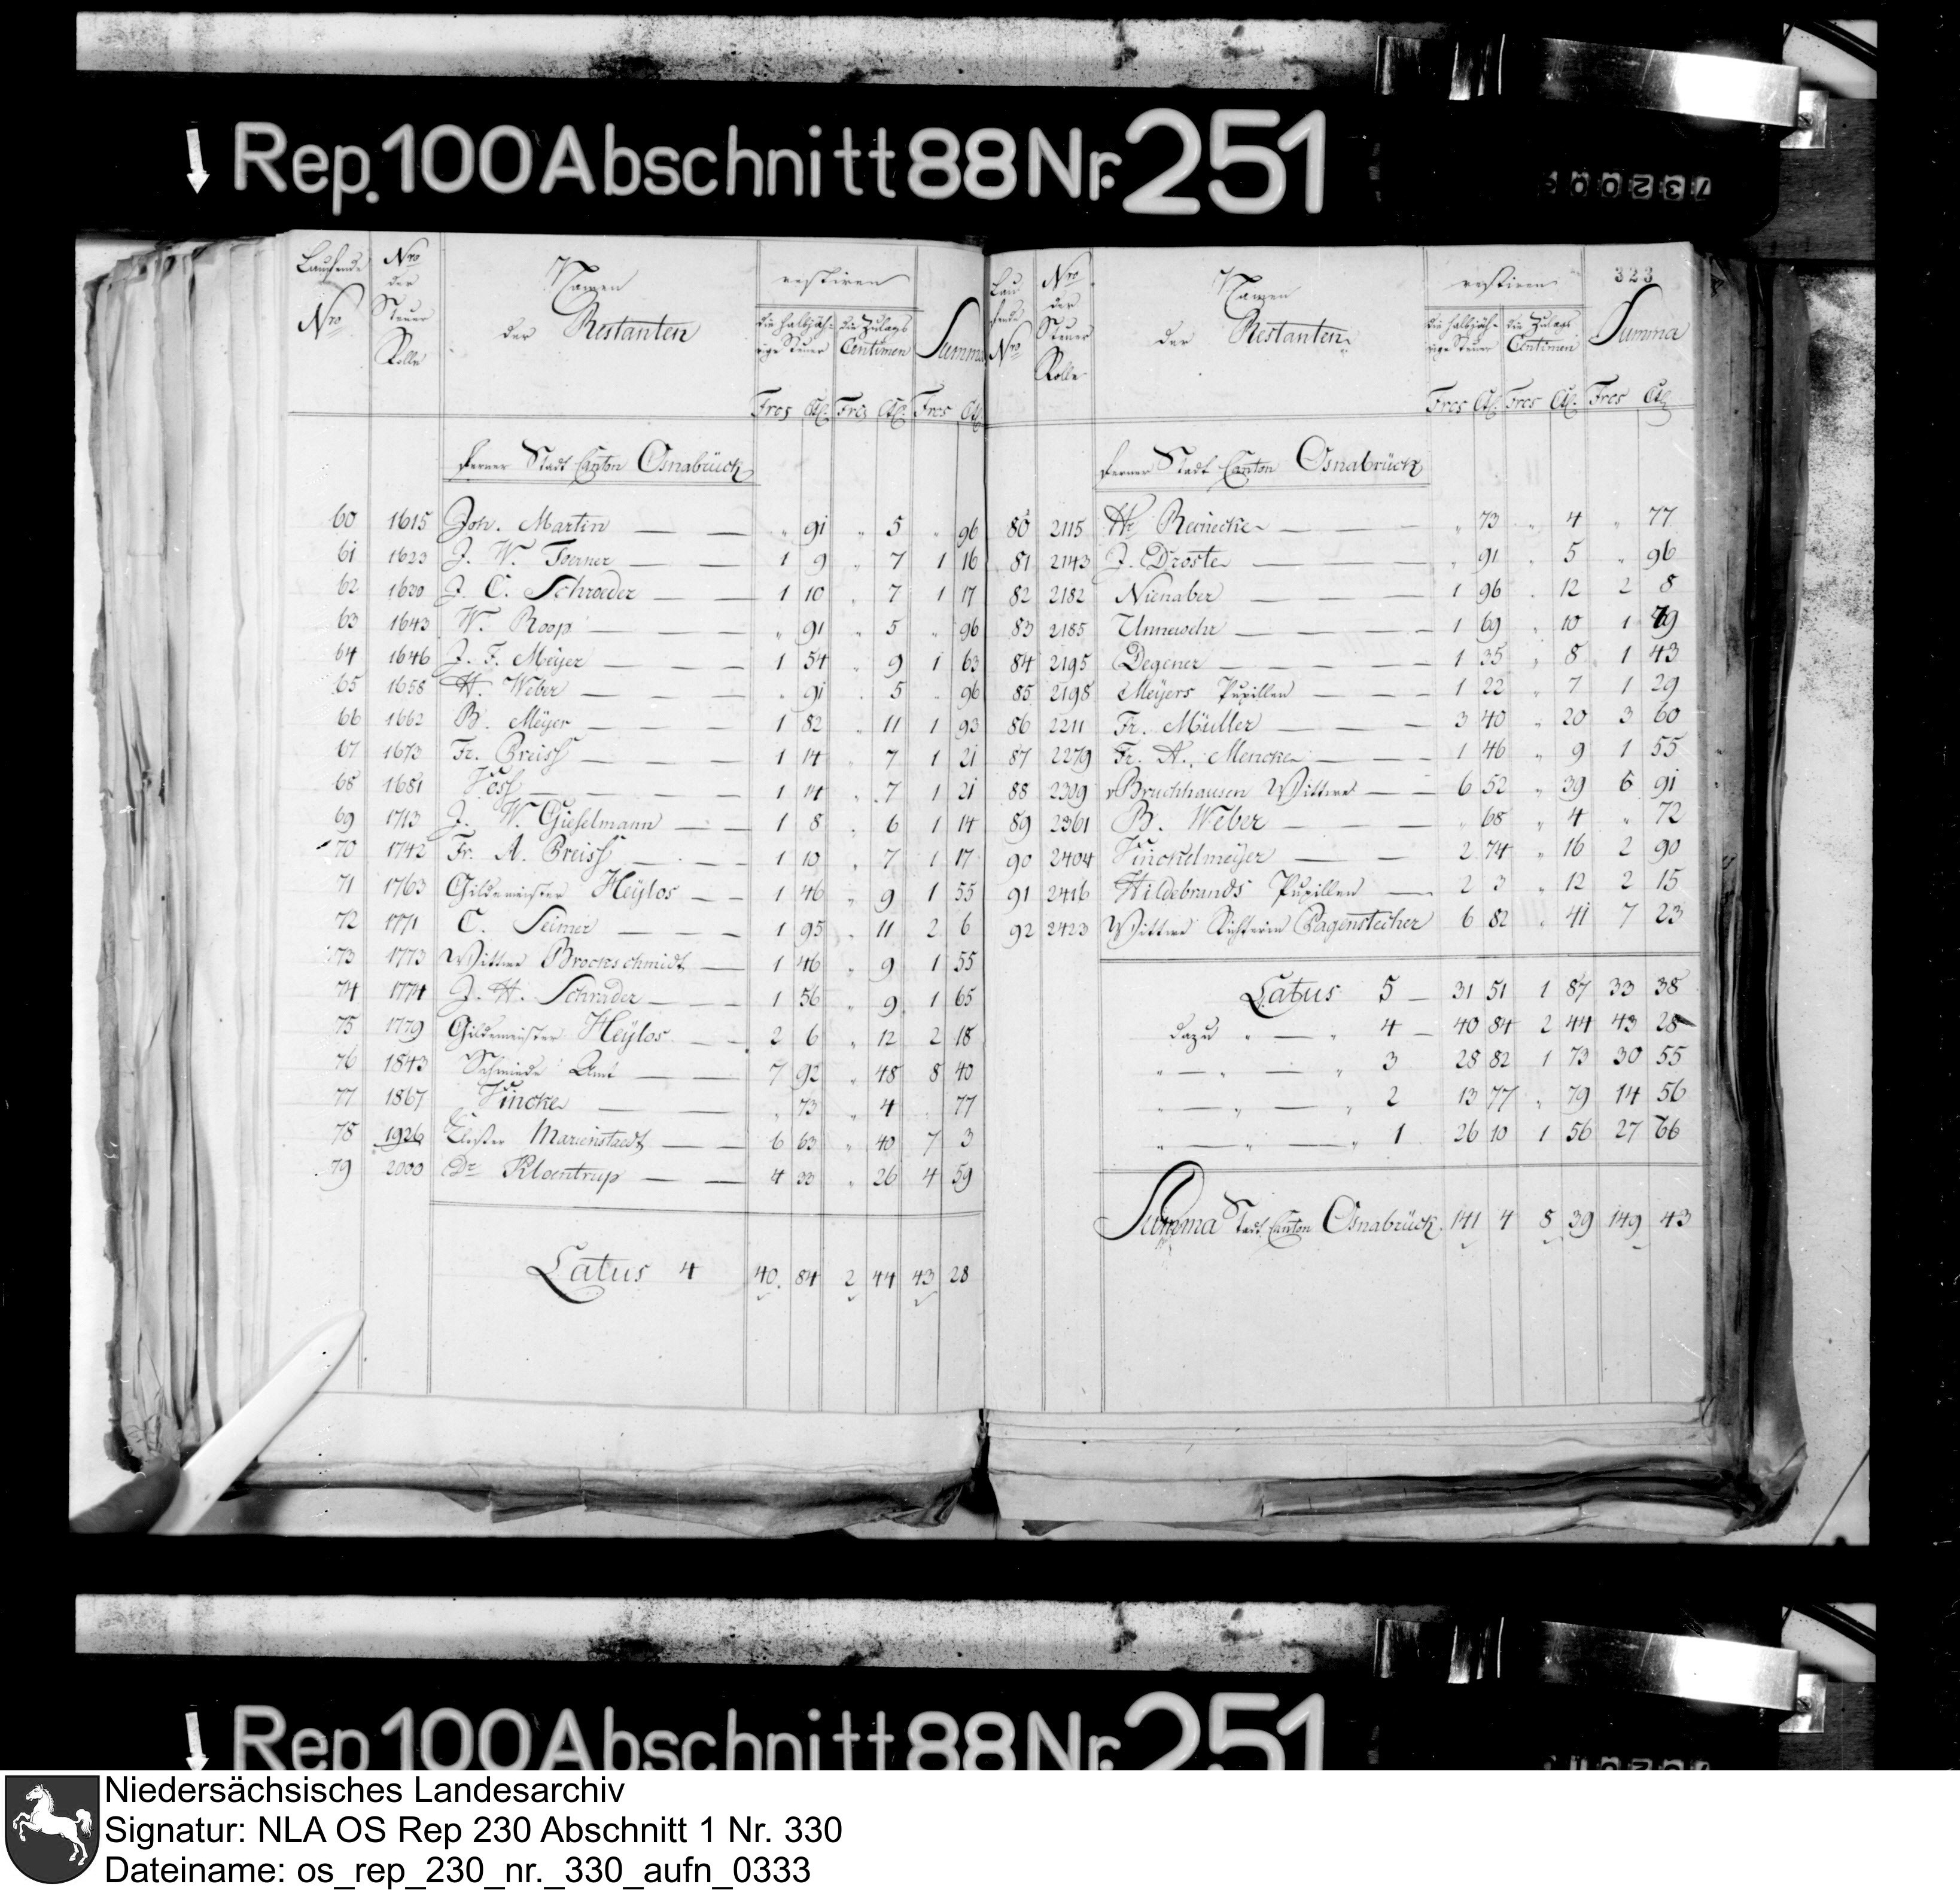 Rep. 100 Abschnitt 88 Nr. 251
Laufende Nro
Nro der Steuer Rolle
Namen der Restanten
restiren
die halbjährige Steuer
die Zulags Centimen
Summa
Frcs Ct. Frcs Ct. Frcs Ct.
ferner Stadt Canton Osnabrück
60 1615 Joh. Martin — — — " 91 " 5 " 96
61 1623 J. W. Foerner — — 1 9 " 7 1 16
62 1630 J. C. Schroeder — — 1 10 " 7 1 17
63 1643 W. Roop — — — " 91 " 5 " 96
64 1646 J. F. Meÿer — — — 1 54 " 9 1 63
65 1658 H. Weber — — — " 91 " 5 " 96
66 1662 B. Meÿer — — — 1 82 " 11 1 93
67 1673 Fr. Breiss — — — 1 14 " 7 1 21
68 1681 — — — 1 14 " 7 1 21
69 1713 J. W. Gieselmann — — 1 8 " 6 1 14
70 1742 Fr. A. Breiss — — 1 10 " 7 1 17
71 1763 Gildemeister Heÿlos — — 1 46 " 9 1 55
72 1771 C. — — — 1 95 " 11 2 6
73 1773 Wittwe Brockschmidt — 1 46 " 9 1 55
74 1774 J. H. Schrader — — 1 56 " 9 1 65
75 1779 Gildemeister Heÿlos — — 2 6 " 12 2 18
76 1843 Schmiede Amt — — 7 92 " 48 8 40
77 1867 Vincke — — " 73 " 4 " 77
78 1926 Closter Marienstaedt — 6 63 " 40 7 3
79 2000 Dr Kloentrup — — 4 33 " 26 4 59
Latus 4 40 84 2 44 43 28
323
Laufende Nro
Nro der Steuer Rolle
Namen der Restanten
restiren
die halbjährige Steuer
die Zulags Centimen
Summa
Frcs Ct. Frcs Ct. Frcs Ct.
ferner Stadt Canton Osnabrück
80 2115 Hr Reinecke — — — " 73 " 4 " 77
81 2143 J. Droste — — — " 91 " 5 " 96
82 2182 Nienaber — — — 1 96 " 12 2 8
83 2185 Unnewehr — — — 1 69 " 10 1 79
84 2195 Degener — — — 1 35 " 8 1 43
85 2198 Meÿers Pupillen — — 1 22 " 7 1 29
86 2211 Fr. Müller — — — 3 40 " 20 3 60
87 2279 Fr. A. Mencke — — 1 46 " 9 1 55
88 2309 v Bruchhausen Wittwe — — 6 52 " 39 6 91
89 2361 B. Weber — — — " 68 " 4 " 72
90 2404 Vinckelmeÿer — — 2 74 " 16 2 90
91 2416 Hildebrands Pupillen — 2 3 " 12 2 15
92 2423 Wittwe Richterin Pagenstecher 6 82 " 41 7 23
Latus 5 — 31 51 1 87 33 38
dazu " — " 4 — 40 84 2 44 43 28
" — " — " 3 28 82 1 73 30 55
" — " — " 2 13 77 " 79 14 56
" — " — " 1 26 10 1 56 27 66
Summa Stadt Canton Osnabrück 141 4 8 39 149 43
Rep. 100 Abschnitt 88 Nr. 251
Niedersächsisches Landesarchiv
Signatur: NLA OS Rep 230 Abschnitt 1 Nr. 330
Dateiname: os_rep_230_nr._330_aufn_0333